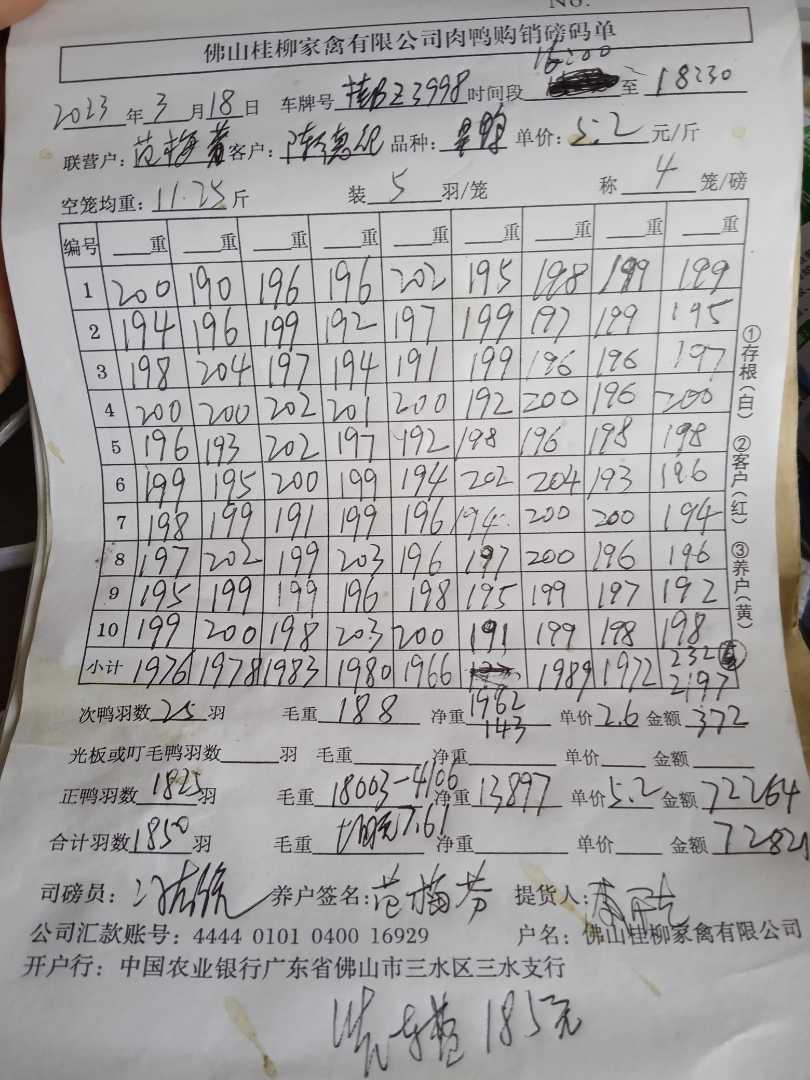 No.
佛山桂柳家禽有限公司肉鸭购销磅码单
2023年3月18日 车牌号 桂BZ3998 时间段 16:00 至 18:30
联营户: 范梅芳 客户: 陈德 品种: 单价: 5.2 元/斤
空笼均重: 11.25 斤 装 5 羽/笼 称 4 笼/磅
编号 重 重 重 重 重 重 重 重 重
1 200 190 196 196 202 195 198 199 199
2 194 196 199 192 197 199 197 199 195
3 198 204 197 194 191 199 196 196 197
4 200 200 202 201 200 192 200 196 200
5 196 193 202 197 192 198 196 198 198
6 199 195 200 199 194 202 204 193 196
7 198 199 191 199 196 194 200 200 194
8 197 202 199 203 196 197 200 196 196
9 195 199 199 196 198 195 199 197 192
10 199 200 198 203 200 191 199 198 198
小计 1976 1978 1983 1980 1966 1962 1989 1972 232 2197
次鸭羽数 25 羽 毛重 188 净重 143 单价 2.6 金额 372
光板或叮毛鸭羽数 羽 毛重 净重 单价 金额
正鸭羽数 1825 羽 毛重 18003-4106 净重 13897 单价 5.2 金额 72264
合计羽数 1850 羽 毛重 7.61 净重 单价 金额 72821
司磅员: 养户签名: 范梅芳 提货人:
公司汇款账号: 4444 0101 0400 16929 户名: 佛山桂柳家禽有限公司
开户行: 中国农业银行广东省佛山市三水区三水支行
185元
①存根(白) ②客户(红) ③养户(黄)